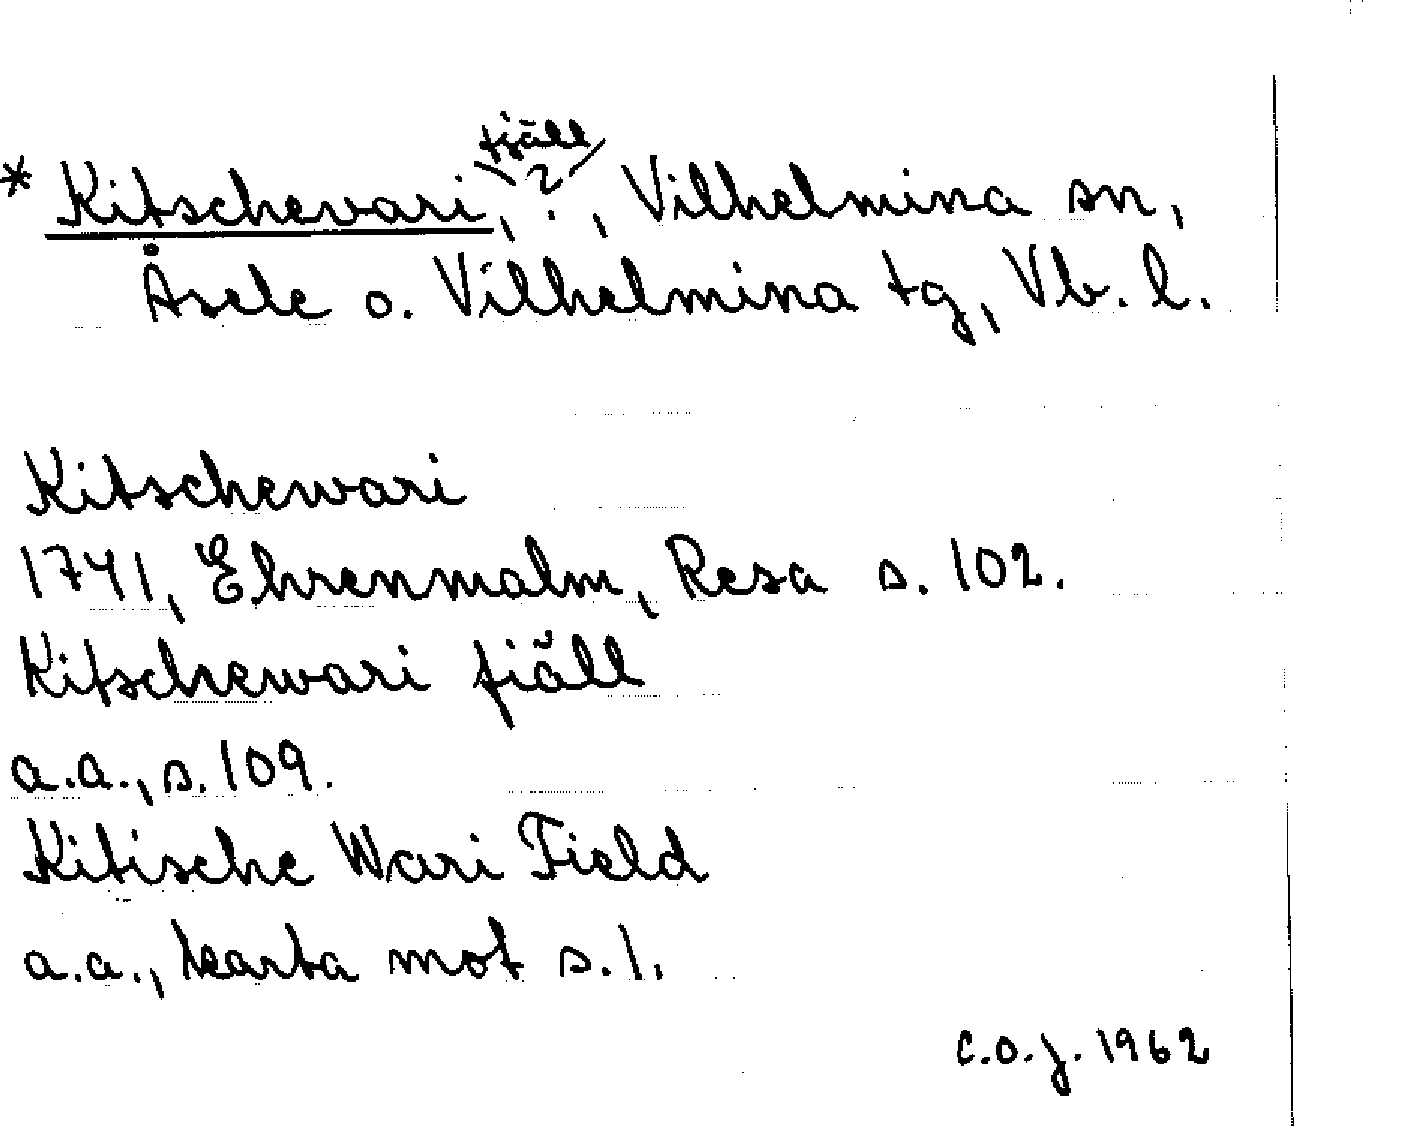 * Kitschevari, \fjäll/ ?, Vilhelmina sn,
Åsele o. Vilhelmina tg, Vb. l.
Kitschewari
1741, Ehrenmalm, Resa s. 102.
Kitschewari fiäll
a.a., s. 109.
Kitische Wari Field
a.a., karta mot s. 1.
C.O.J. 1962